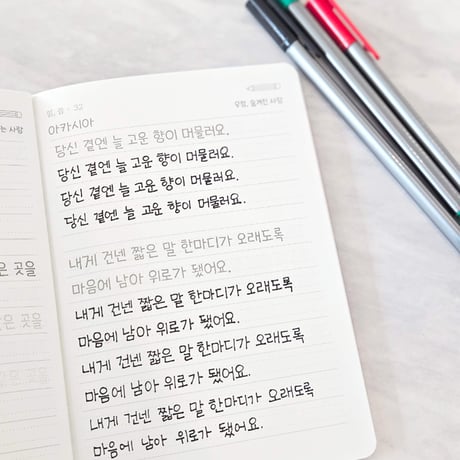 는 사랑
은 곳을
은 곳을
은 곳을
32
우정, 숨겨진 사랑
아카시아
당신 곁엔 늘 고운 향이 머물러요.
당신 곁엔 늘 고운 향이 머물러요.
당신 곁엔 늘 고운 향이 머물러요.
당신 곁엔 늘 고운 향이 머물러요.
내게 건넨 짧은 말 한마디가 오래도록
마음에 남아 위로가 됐어요.
내게 건넨 짧은 말 한마디가 오래도록
마음에 남아 위로가 됐어요.
내게 건넨 짧은 말 한마디가 오래도록
마음에 남아 위로가 됐어요.
내게 건넨 짧은 말 한마디가 오래도록
마음에 남아 위로가 됐어요.